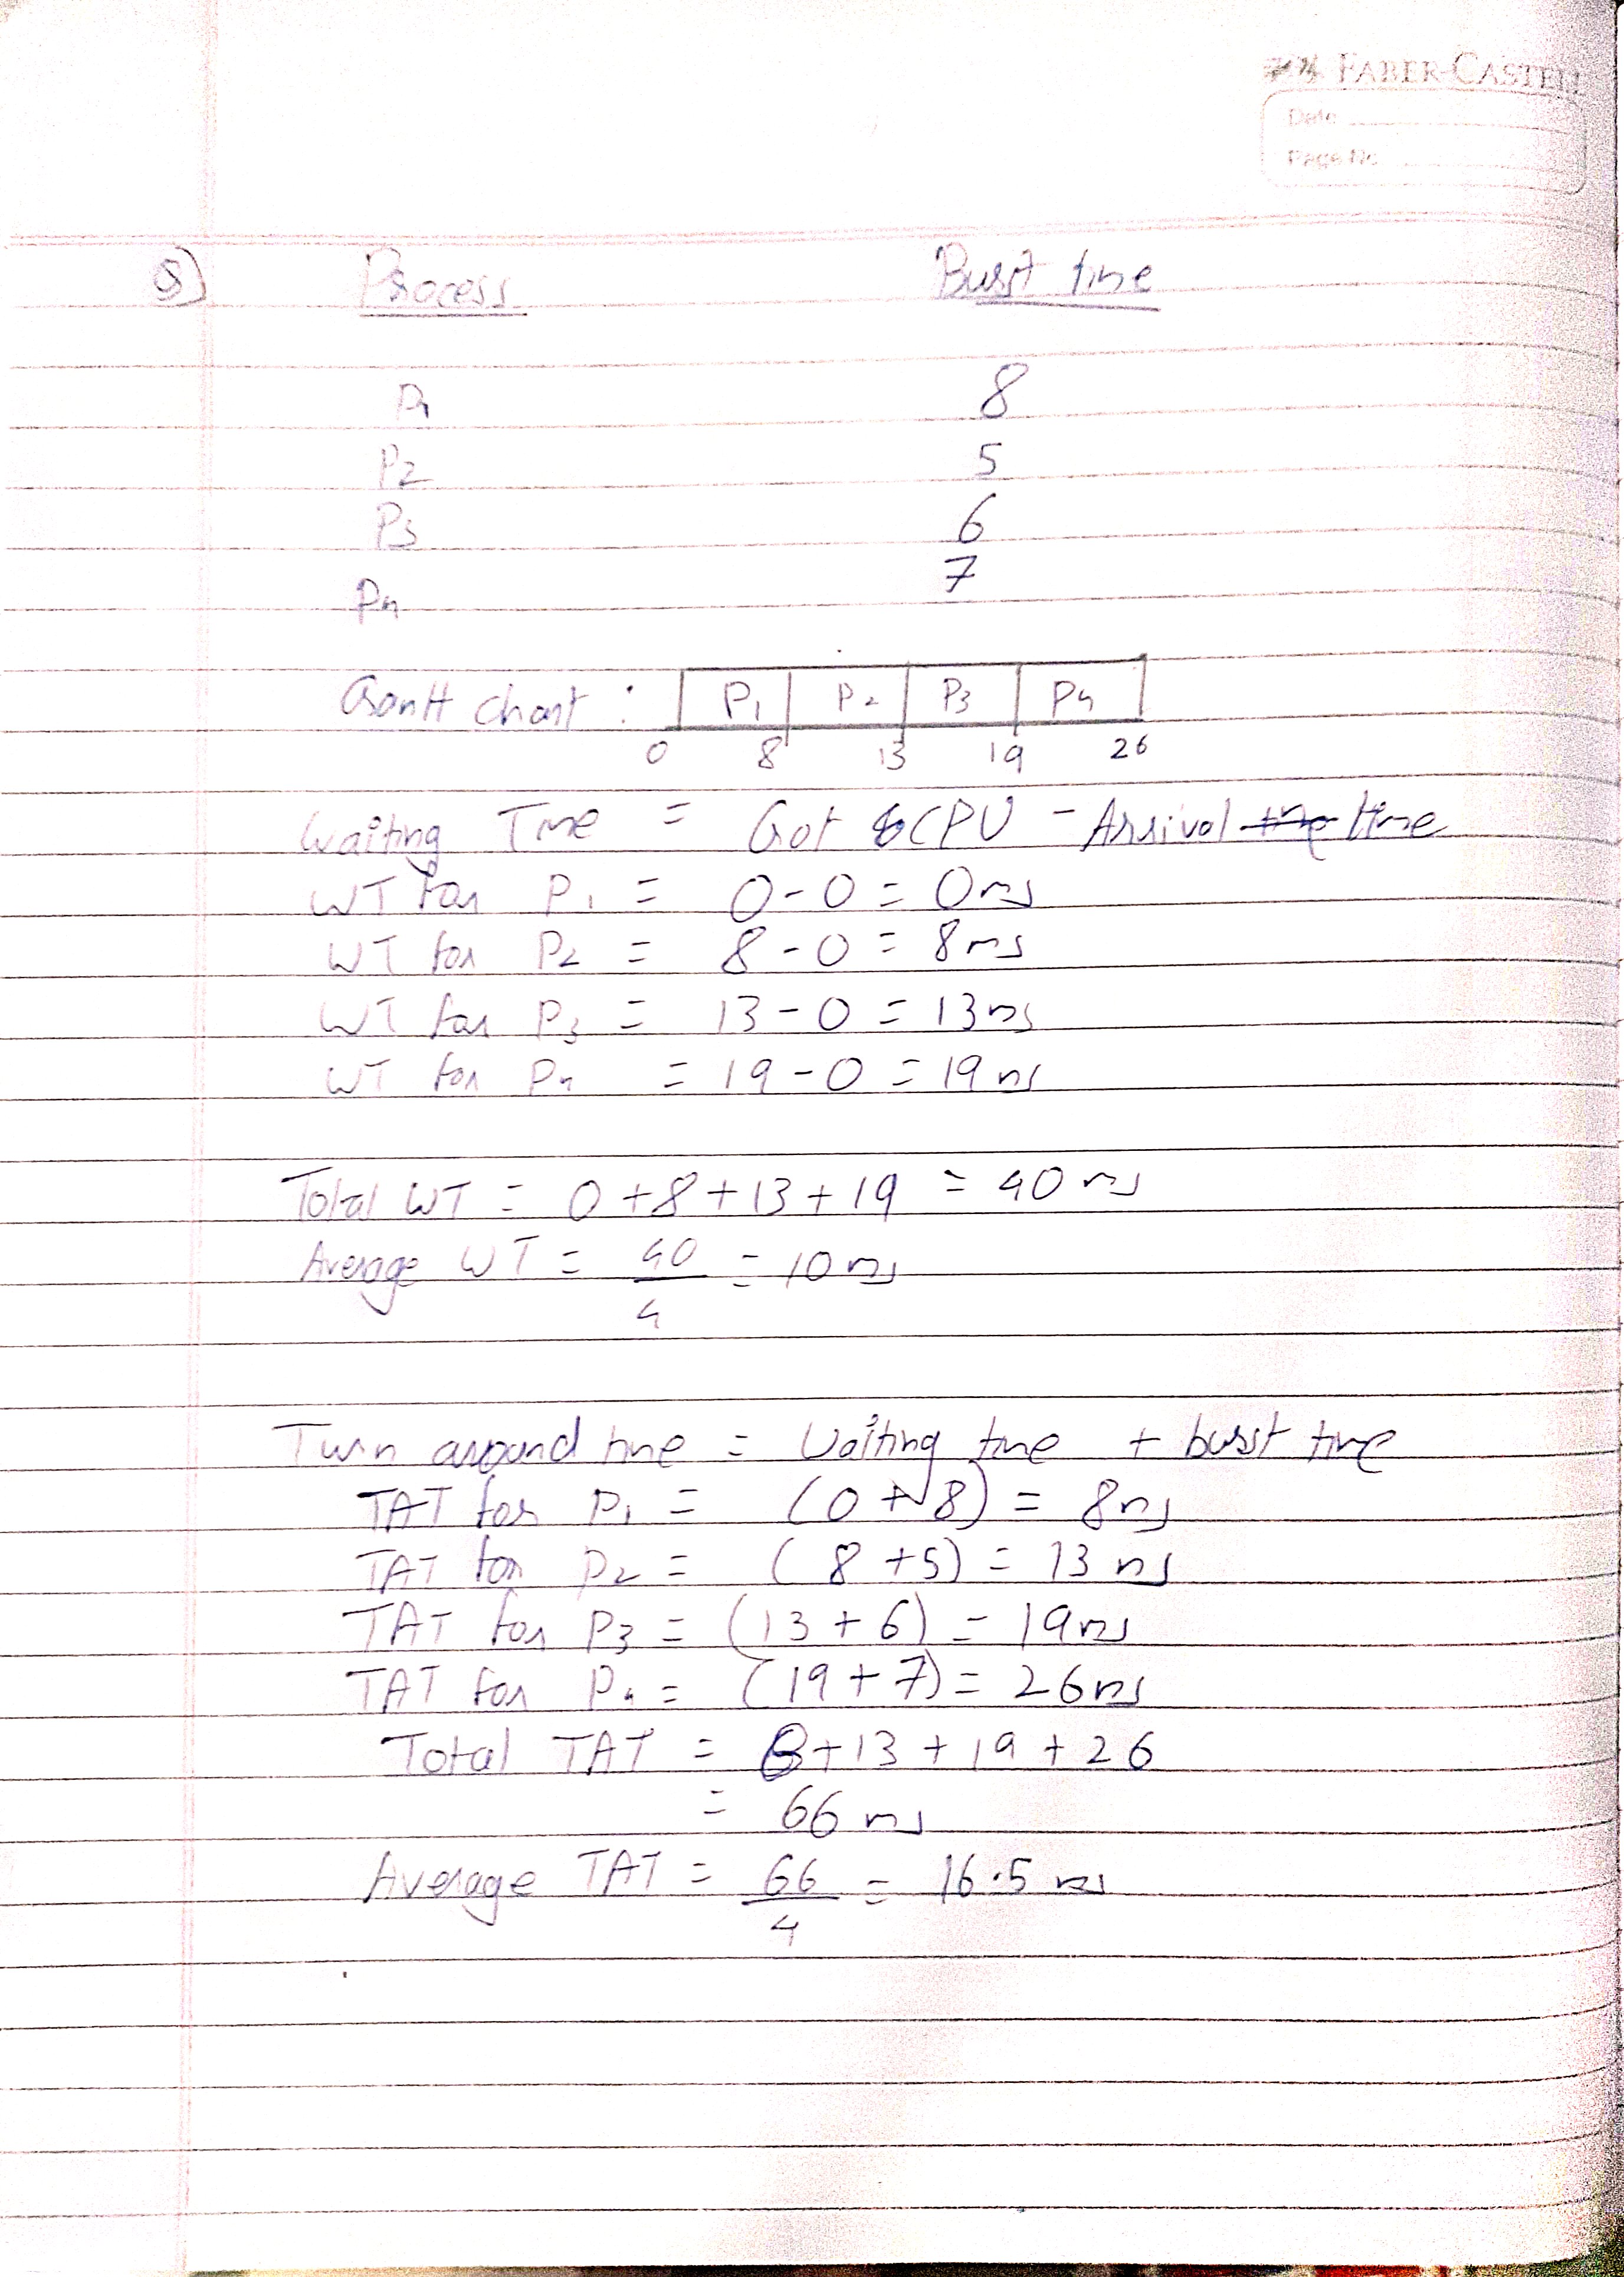 FABER-CASTELL
Date
Page No
Q) Process Burst time
P1 8
P2 5
P3 6
P4 7
Gantt chart : P1 P2 P3 P4
0 8 13 19 26
Waiting Time = Got CPU - Arrival time time
WT for P1 = 0 - 0 = 0ms
WT for P2 = 8 - 0 = 8ms
WT for P3 = 13 - 0 = 13ms
WT for P4 = 19 - 0 = 19ms
Total WT = 0 + 8 + 13 + 19 = 40 ms
Average WT = 40/4 = 10 ms
Turn around time = Waiting time + burst time
TAT for P1 = (0 + 8) = 8ms
TAT for P2 = (8 + 5) = 13 ms
TAT for P3 = (13 + 6) = 19ms
TAT for P4 = (19 + 7) = 26ms
Total TAT = 8 + 13 + 19 + 26
= 66 ms
Average TAT = 66/4 = 16.5 ms